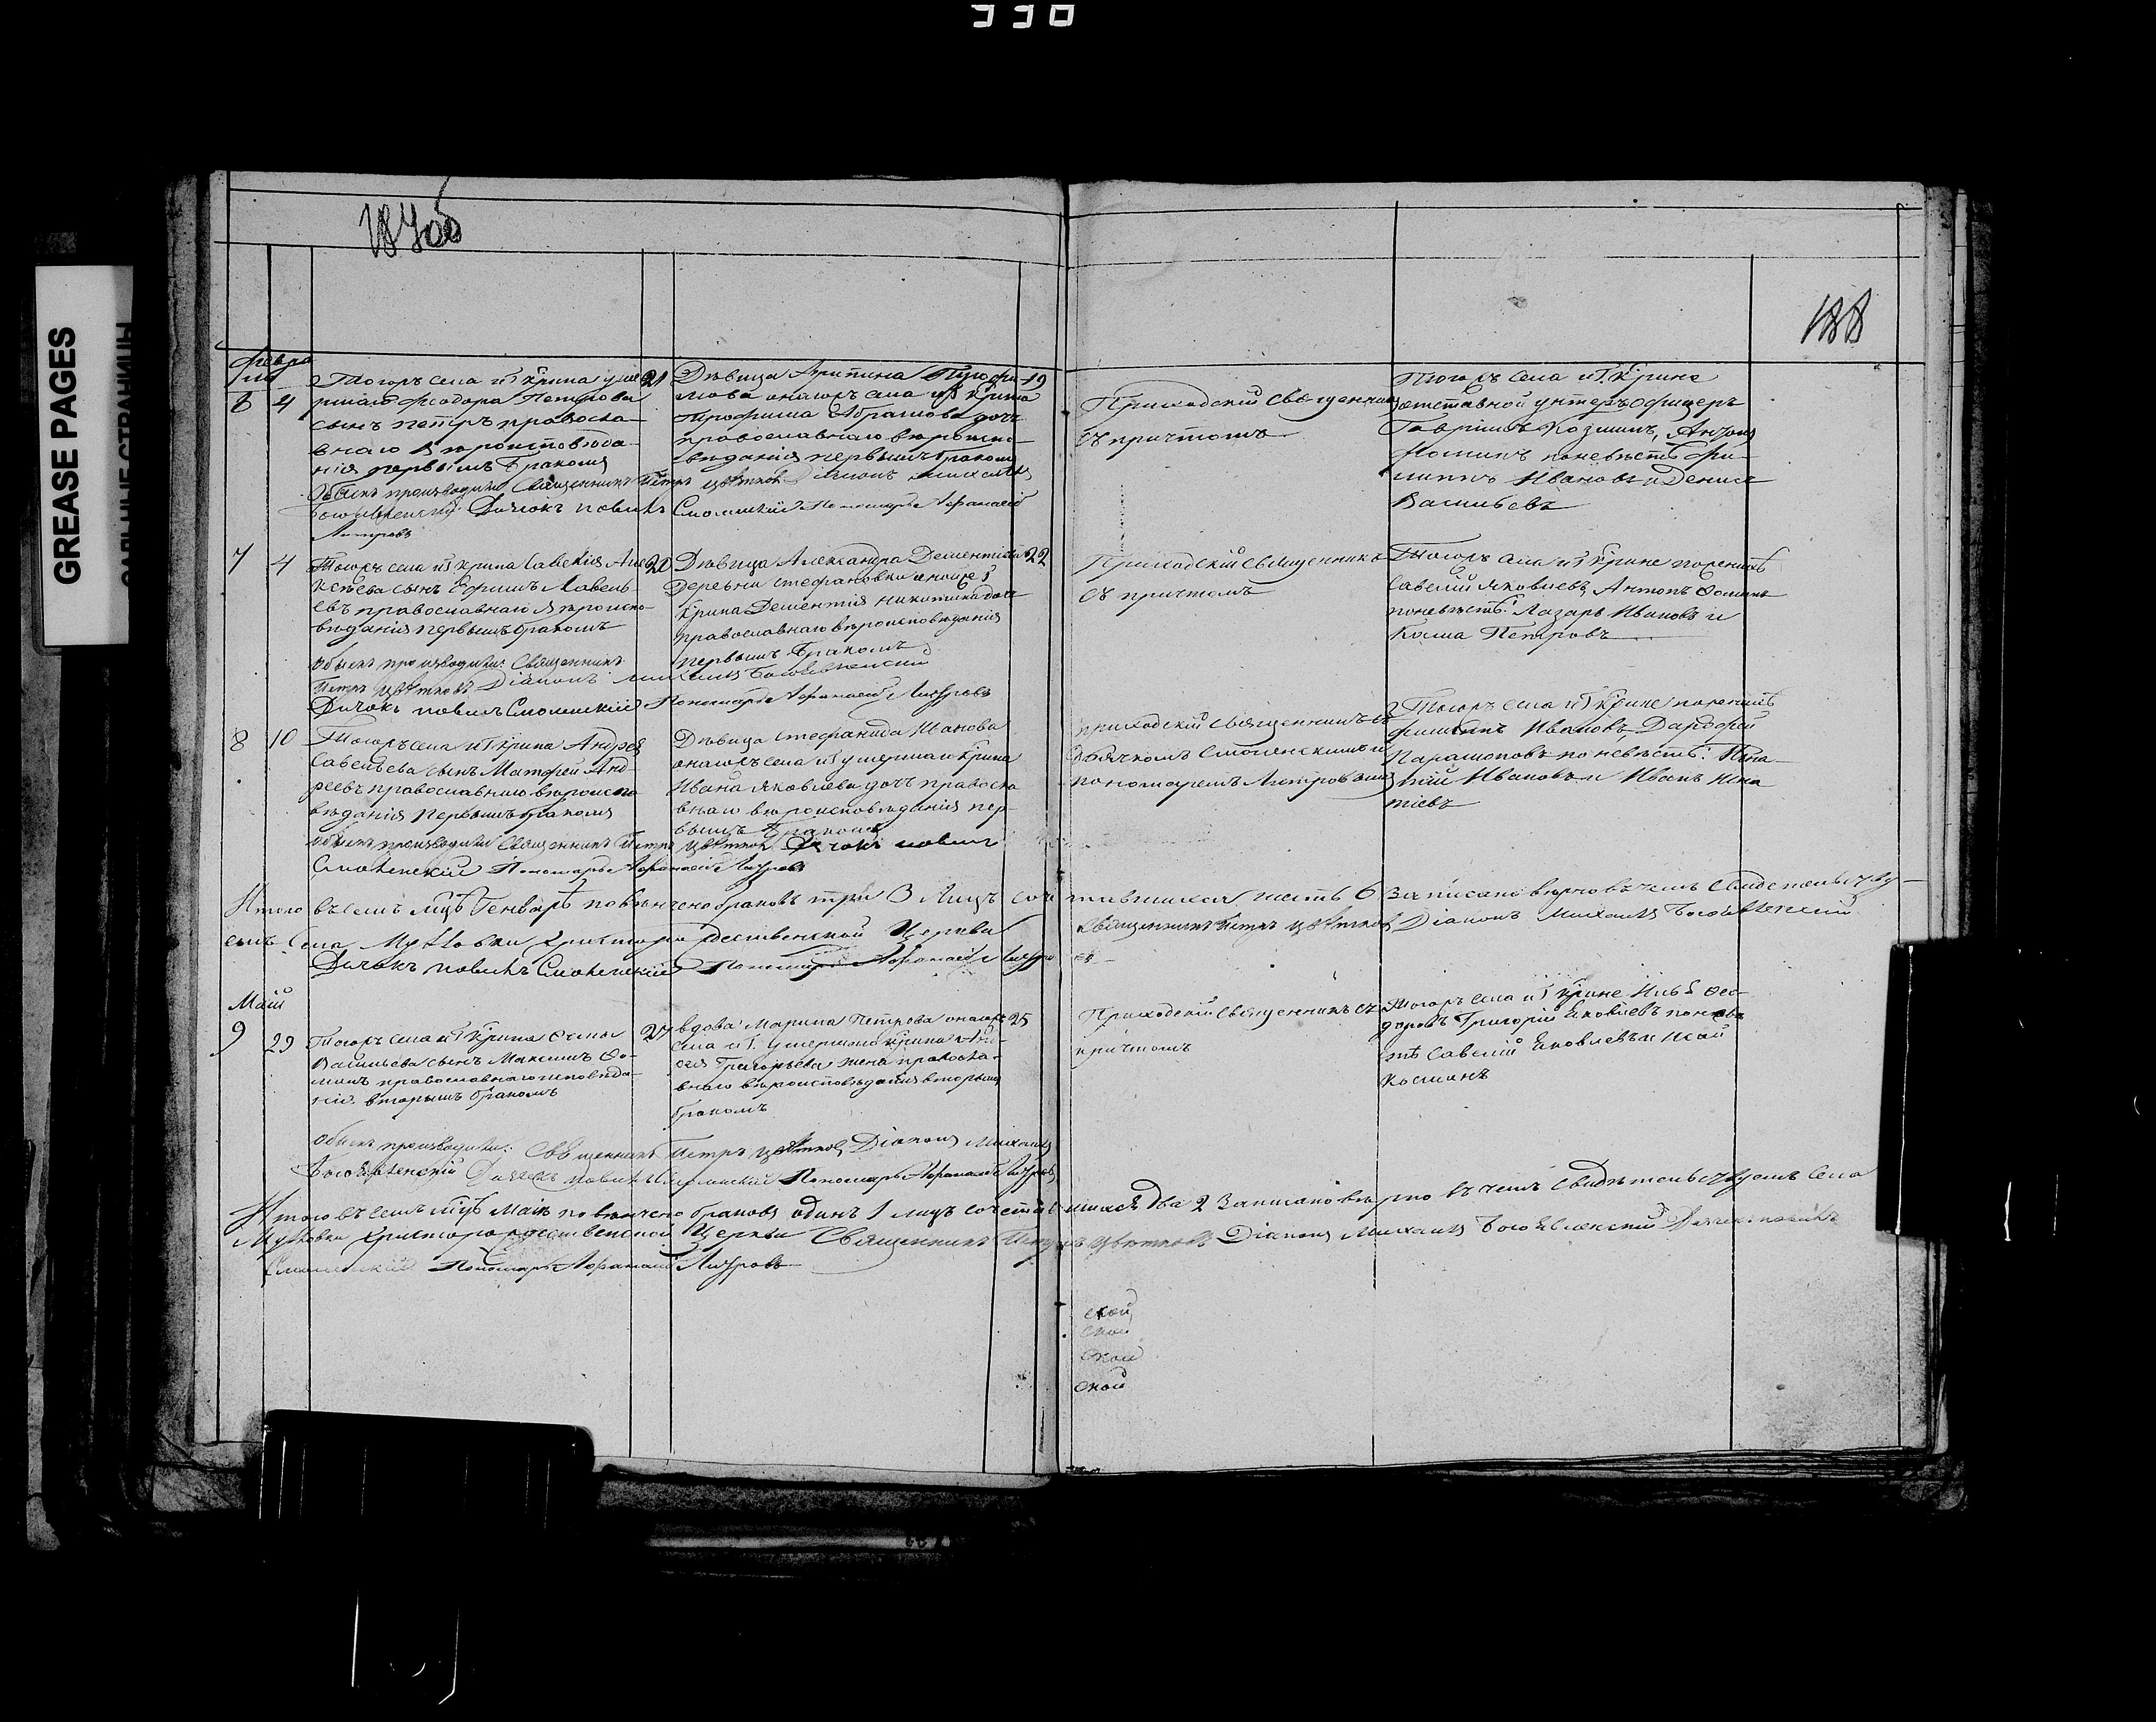 330
GREASE PAGES
187об
188
Февра
ля
6 4
Тогоже села и Г. крина умe
ршаго Феодора Петрова
сынъ Петръ правосла-
внаго вѣроисповѣда-
нія первымъ бракомъ
21
Дѣвица Агрипина Трофи-
мова онагожъ села и Г. крина
Трофима Абрамова дочь
православнаго вѣроиспо-
вѣданія первымъ бракомъ
19
Приходскій Священникъ
съ причтомъ
Тогожъ села и Г. крине
отставной унтеръ Офицеръ
Гаврилъ Козминъ, Антонъ
Фоминъ по невѣстѣ Фи-
липпъ Ивановъ и Денисъ
Васильевъ
Обыскъ производили Священникъ Петръ Цвѣтковъ Діаконъ Михаилъ
Богоявленскій Дьячокъ Павелъ Смоленскій Пономарь Афанасій
7 4
Тогожъ села и Г. крина Савелія Але
ксѣева сынъ Ефимъ Савель-
евъ православнаго вѣроиспо-
вѣданія первымъ бракомъ
20
Дѣвица Александра Дементіева
деревни Стефановки
крина Дементія Никитина дочь
православнаго вѣроисповѣданія
первымъ бракомъ
22
Приходскій Священникъ
съ причтомъ
Тогожъ села и Г. крине по женихѣ
Савелій Яковлевъ, Антонъ Фоминъ
по невѣстѣ: Лазарь Ивановъ и
Козма Петровъ
Обыскъ производили: Священникъ
Петръ Цвѣтковъ Діаконъ Михаилъ Богоявленскій
Дьячокъ Павелъ Смоленскій Пономарь Афанасій
8 10
Тогожъ села и Г. крина Андрея
Савельева сынъ Матфей Анд-
реевъ православнаго вѣроиспо
вѣданія первымъ бракомъ
Дѣвица Стефанида Иванова
онагожъ села и Г. умершаго крина
Ивана Яковлева дочь правосла
внаго вѣроисповѣданія пер-
вымъ бракомъ
Приходскій Священникъ съ
дьячкомъ Смоленскимъ и
пономаремъ
Тогожъ села и Г. крине по женихѣ
Филипъ Ивановъ, Дарофей
Парамоновъ по невѣстѣ: Игна-
тій Ивановъ и Иванъ Игна
тіевъ
Обыскъ производили Священникъ Петръ Цвѣтковъ Дьячокъ Павелъ
Смоленскій Пономарь Афанасій
Итого въ семъ мцѣ Генварѣ повѣнчено браковъ три 3 Лицъ соче тавшихся шесть 6 Записано вѣрно въ чемъ свидетельству-
емъ Села Христорождественской Церкви Священникъ Петръ Цвѣтковъ Діаконъ Михаилъ Богоявленскій
Дьячокъ Павелъ Смоленскій Пономарь Афанасій
Маій
9 29
Тогожъ села и Г. крина Фомы
Васильева сынъ Максимъ Фо-
минъ православнаго исповѣда-
нія вторымъ бракомъ
27
вдова Марина Петрова онагожъ
села и Г. умершаго крина
Григорьева жена правосла-
внаго вѣроисповѣданія вторымъ
бракомъ
25
Приходскій Священникъ съ
причтомъ
Тогожъ села и Г. крине Илья Фео-
доровъ Григорій Яковлевъ по невѣ
стѣ Савелій Яковлевъ и Исай
Косманъ
Обыскъ производили: Священникъ Петръ Цвѣтковъ Діаконъ Михаилъ
Богоявленскій Дьячокъ Павелъ Смоленскій Пономарь Афанасій
Итого въ семъ мцѣ Маіи повѣнчено браковъ одинъ 1 лицъ сочетавшихся два 2 Записано вѣрно въ чемъ свидѣтельствуемъ Села
Христорождественской Церкви Священникъ Петръ Цвѣтковъ Діаконъ Михаилъ Богоявленскій Дьячокъ Павелъ
Смоленскій Пономарь Афанасій
ской
ской
ской
ской